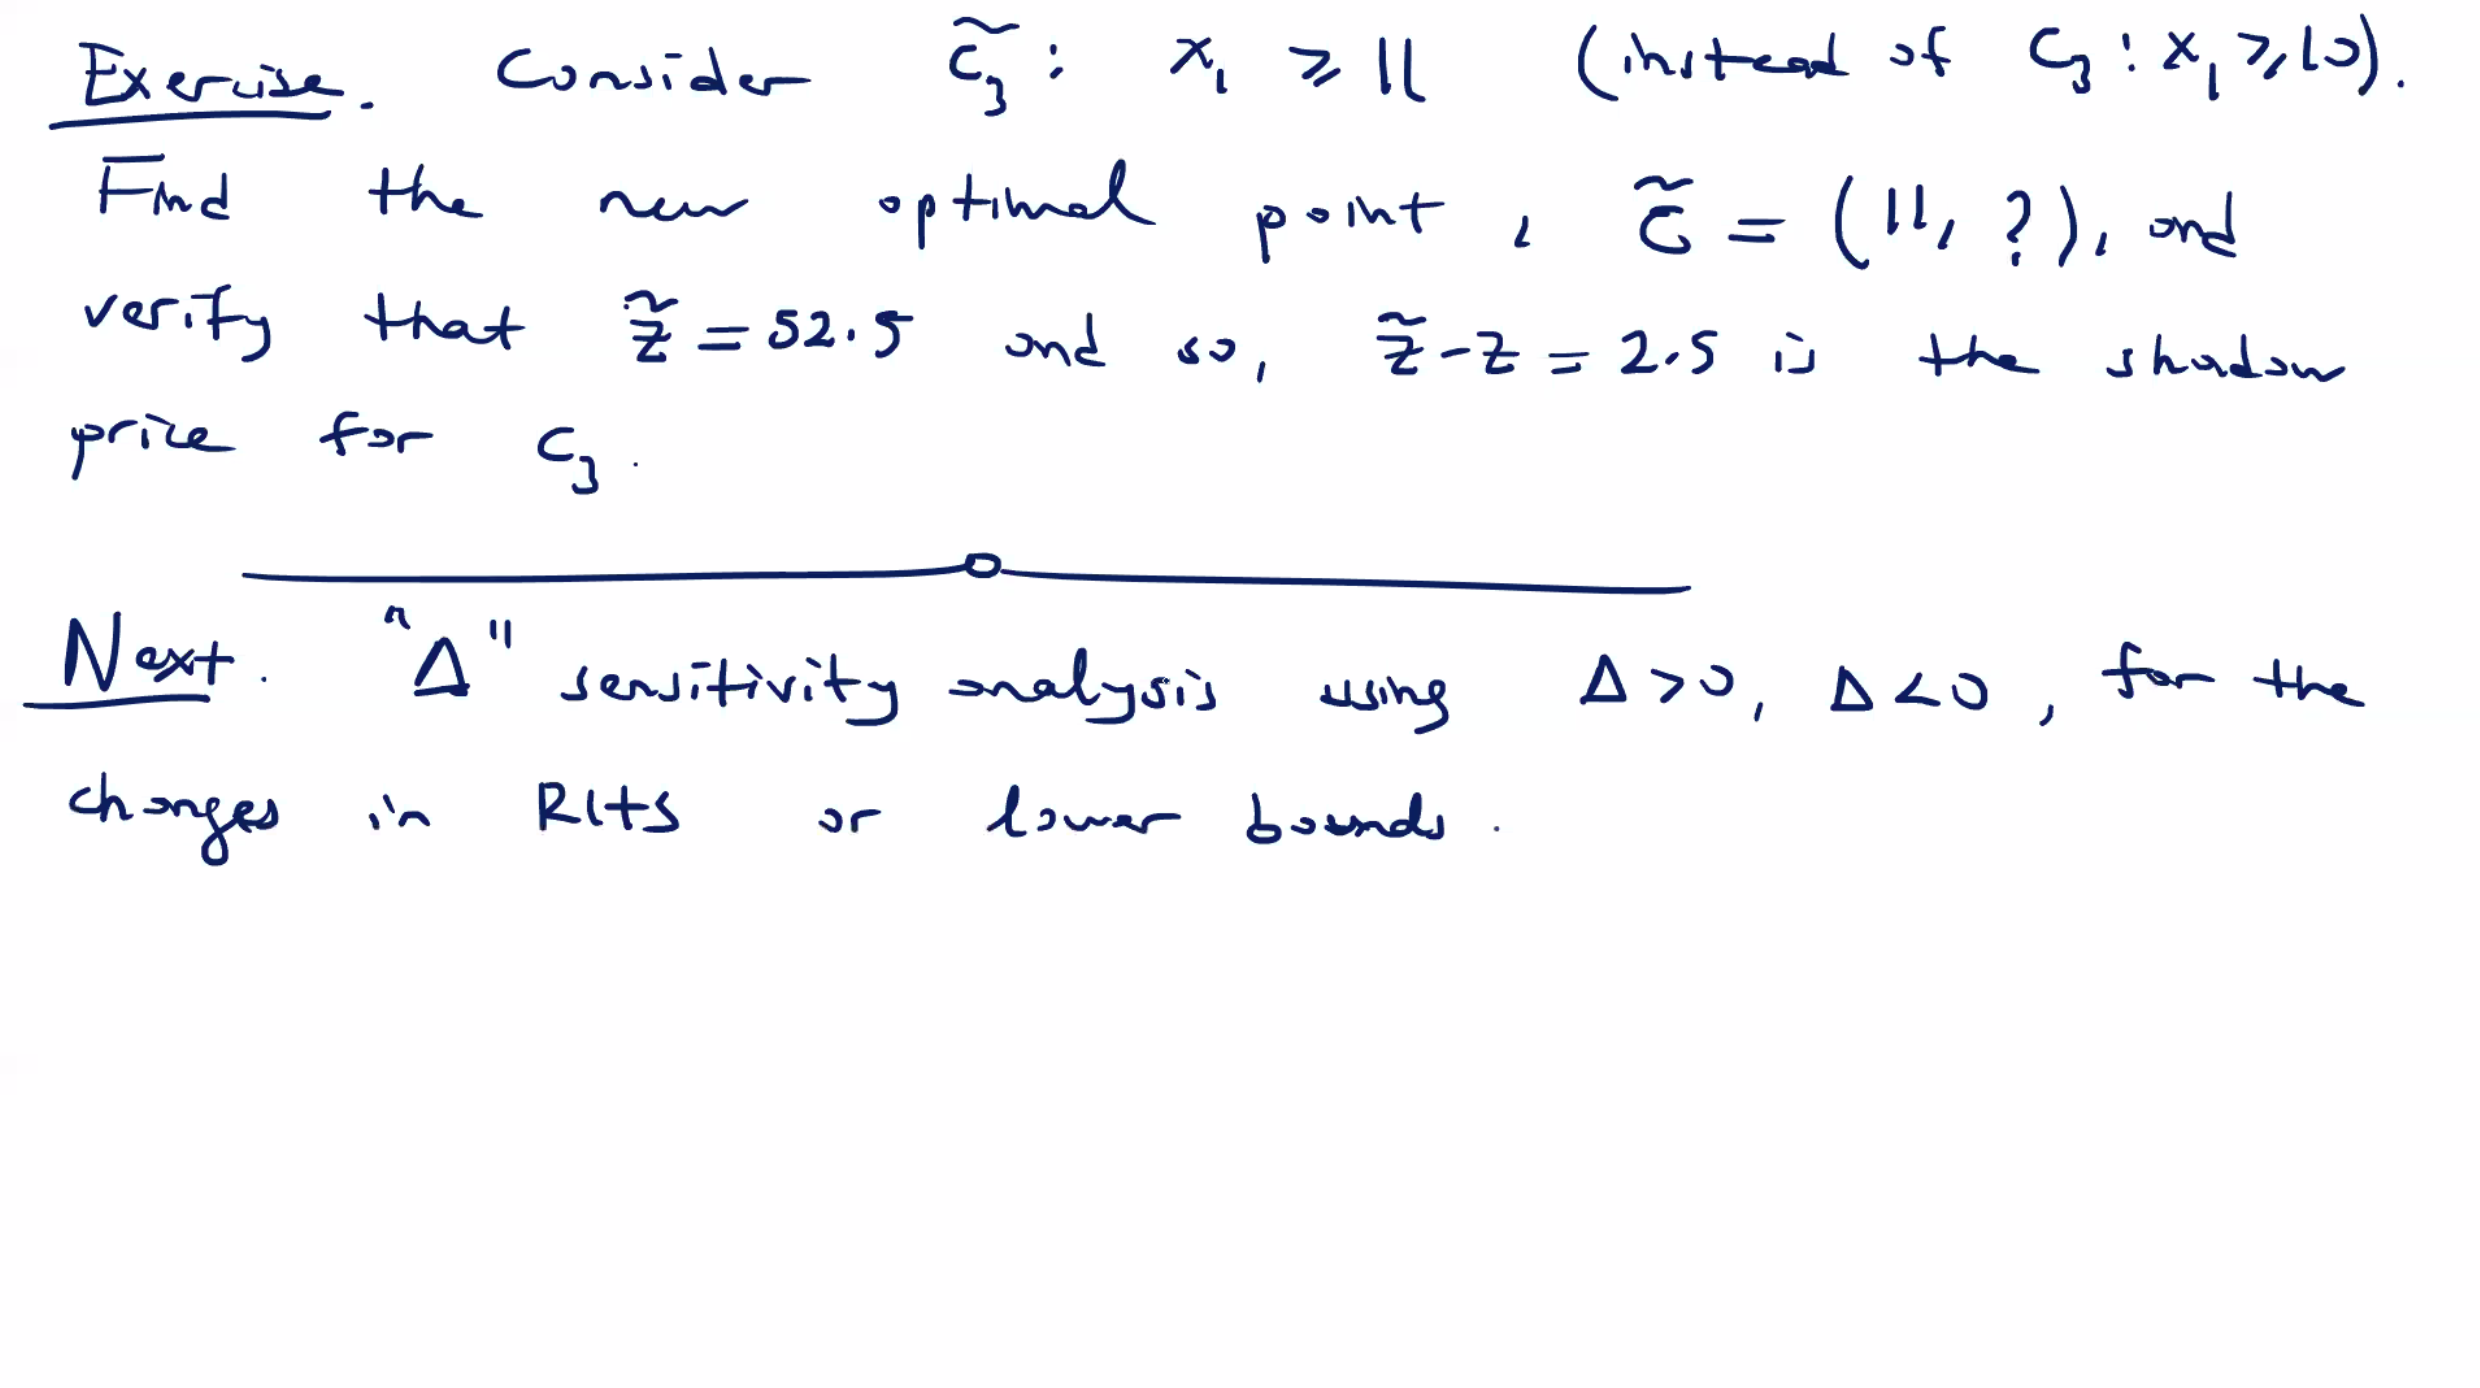 Exercise. Consider c̃₃: x₁ ≥ 11 (instead of c₃: x₁ ≥ 10).
Find the new optimal point, c̃ = (11, ?), and
verify that z̃ = 52.5 and so, z̃ - z = 2.5 is the shadow
price for c₃.
Next. "Δ" sensitivity analysis using Δ > 0, Δ < 0, for the
changes in RHS or lower bounds.